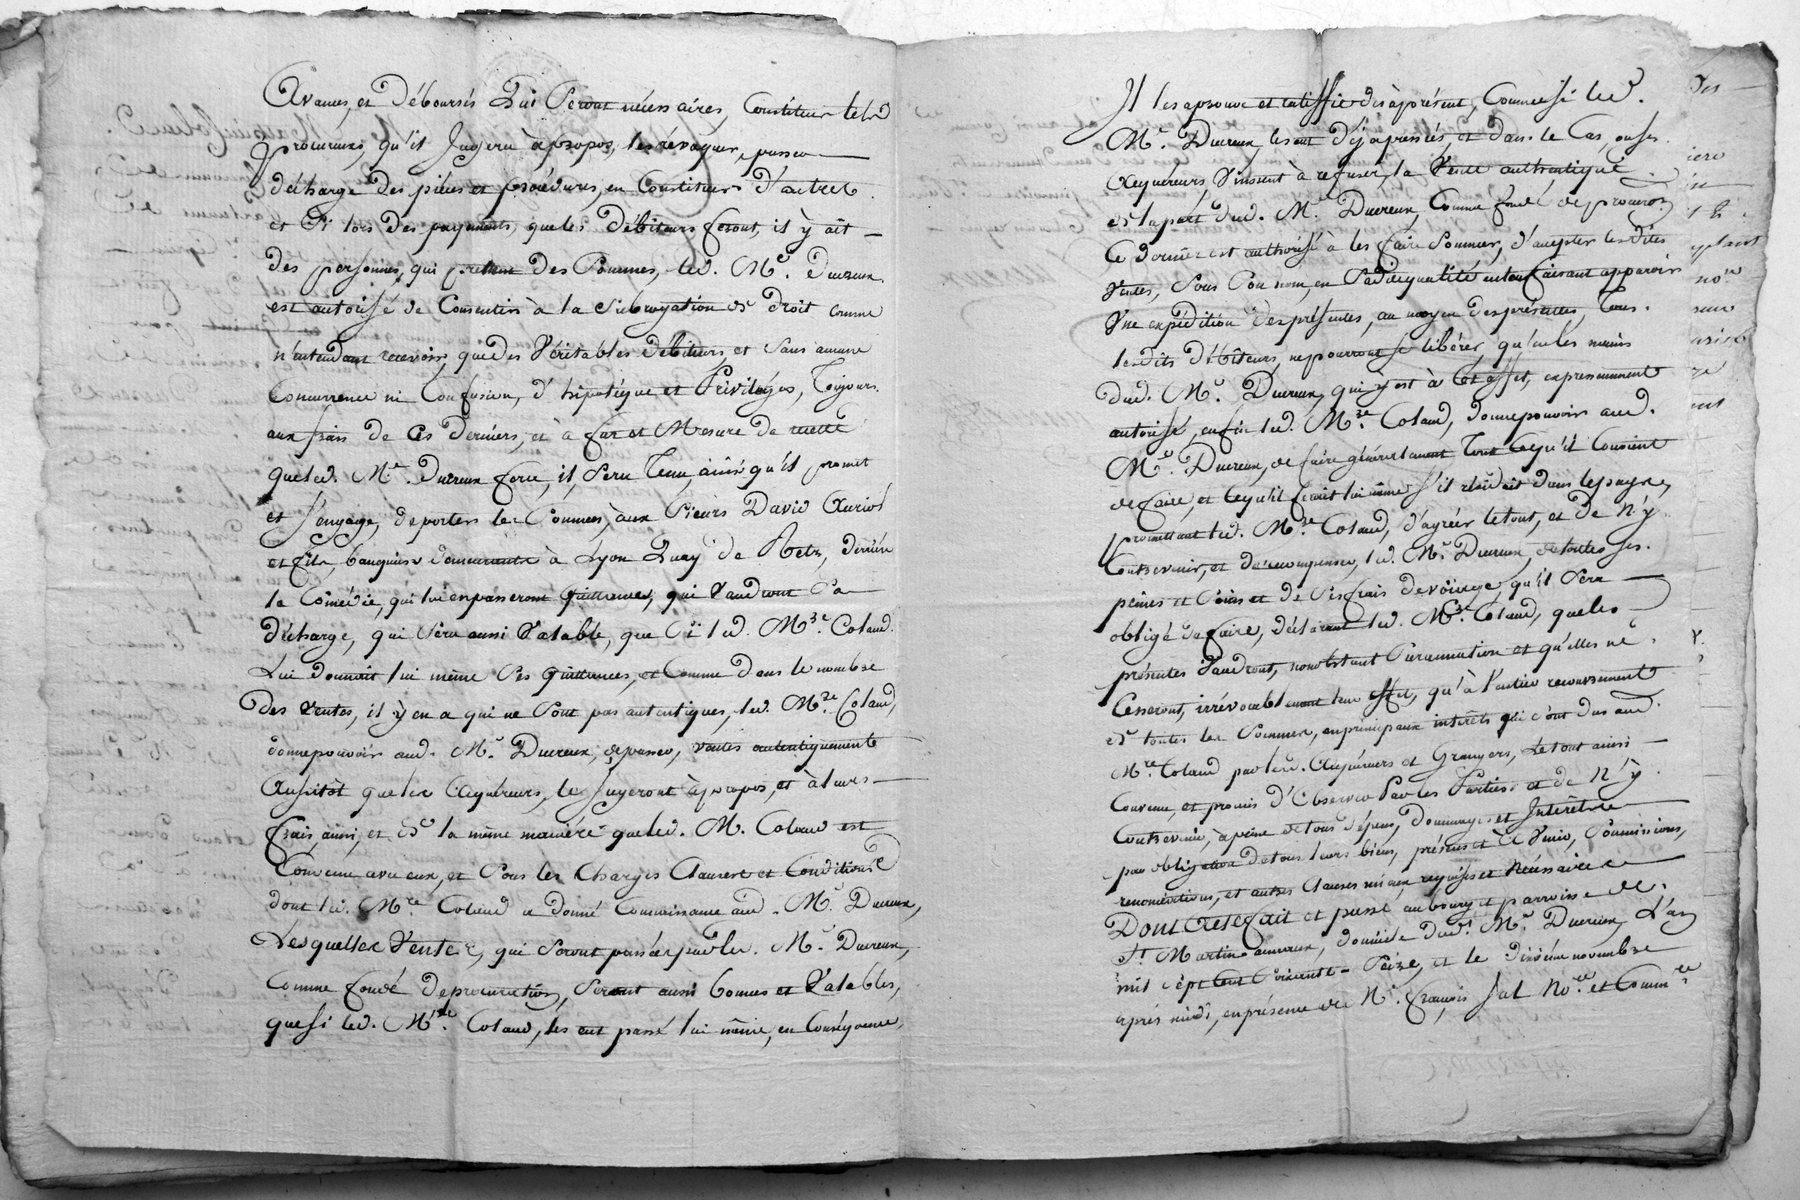 Avances, et Déboursés Qui Seront nécessaires, Constituer telsd
procureurs, qu'il Jugera àpropos, les révoquer, passer
décharge des pièces et procédures, en Constituer D'autres
et Si lors des payements, queles Débiteurs feront, il ÿ ait
des personnes, qui prettent des Sommes, led. Mr. Ducreux
est autorisé de Consentir à la Subrogation de Droit comme
n'entendant recevoir, quedes Véritables Débiteurs, et Sans aucune
Concurrence ni Confusion, d'hipotéque et Privilèges, Toujours
aux frais de Ces Derniers, et à fur et Mesure de recette
queled. Mr. Ducreux fera, il, Sera Tenu, ainsi qu'il promet
et S'engage, deporter les Sommes, aux Sieurs David Auriol
et fils, banquiers demeurants à Lyon Quay de Retz, derrière
la Comédie, qui lui enpasseront quittances, qui Vaudront Sa
décharge, qui Sera aussi Valable, que Si led. Mre. Coland
Lui donnoit lui même Ses quittances, et Comme Dans le nombre
Des Ventes, il ÿ en a qui ne Sont pas autentiques, led. Mre. Coland,
donnepouvoir aud. Mr. Ducreux, depasser, ventes autentiquement
Aussitôt queles Aquéreurs, le Jugeront àpropos, et àleurs
frais, ainsi, et De la même manière queled. M. Coland est
Convenu avec eux, et Sous les Charges Clauses et Conditions
dont led. Mre Coland a donné Connoissance aud. Mr. Ducreux,
Lesquelles Ventes, qui Seront passées parled. Mr. Ducreux,
Comme fondé deprocuration, Seront aussi bonnes et Valables,
quesi led. Mre. Coland, les eut passé lui même, en Conséquence,
Il les aprouve et ratiffie dès àprésent, Comme si led.
Mr. Ducreux, les eut déja passés, et dans le Cas, ou ses
Aquéreurs, Vinssent à refuser, la Vente authentique
de lapart dud. Mr. Ducreux, Comme fondé de procuron
Ce dernier est authorisé à les faire Sommer, d'accepter lesdites
Ventes, Sous Son nom, en Sadite qualité en leur faisant apparoir
Vne expédition des présentes, au moyen desprésentes, Tous
lesdits débiteurs, nepourront se libérer, qu'ès les mains
dud. Mr. Ducreux, qui ÿ est à Cet effet, expressemment
autorisé, enfin led. Mre. Coland, donnepouvoir aud.
Mr. Ducreux, de faire généralement Tout Cequ'il Convient
de faire, et Cequ'il feroit lui même S'il résidoit dans lepays,
promettant led. Mre Coland, d'agréer letout, et De N'ÿ
Contrevenir, et de récompenser, led. Mr. Ducreux, de toutes ses
peines et Soins et de Ses frais devoiage, qu'il Sera
obligé de faire, déclarant led. Mre Coland, queles
présentes Vaudront, nonobstant Surannation et qu'elles ne
Cesseront, irrévocablement leur effet, qu'à l'entier recouvrement
de toutes les Sommes, en principaux intérêts qui Sont dus aud.
Mre. Coland par lesd. Aquéreurs et Grangers, Le tout ainsi
Convenu, et promis d'Observer Par les Parties et de N'ÿ
Contrevenir, à peine de tous dépens, dommages et Intérêts
par obligation de tous leurs biens, présens et à Venir, Soumissions,
renonciations, et autres Clauses mieux requises et Nécessaires
Dont Acte fait et passé au bourg et parroisse de
St. Martin domicile dud. Mr. Ducreux, L'an
mil Sept Cent Soixante Seize, et le Dixième novembre
après midi, en présence de Nr. François Jal Nore. et Commre